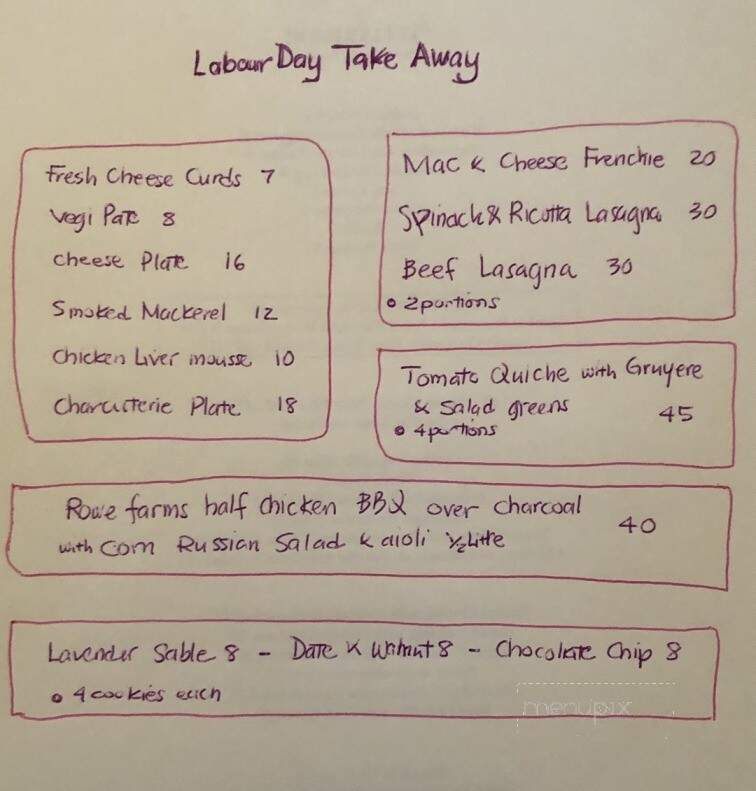 Labour Day Take Away
Fresh Cheese Curds 7
Vegi Pate 8
Cheese Plate 16
Smoked Mackerel 12
Chicken Liver mousse 10
Charcuterie Plate 18
Mac & Cheese Frenchie 20
Spinach & Ricotta Lasagna 30
Beef Lasagna 30
• 2 portions
Tomato Quiche with Gruyere
& Salad greens 45
• 4 portions
Rowe farms half Chicken BBQ over charcoal
with Corn Russian Salad & aioli ½ Litre 40
Lavender Sable 8 - Date & Walnut 8 - Chocolate Chip 8
• 4 cookies each
menupix